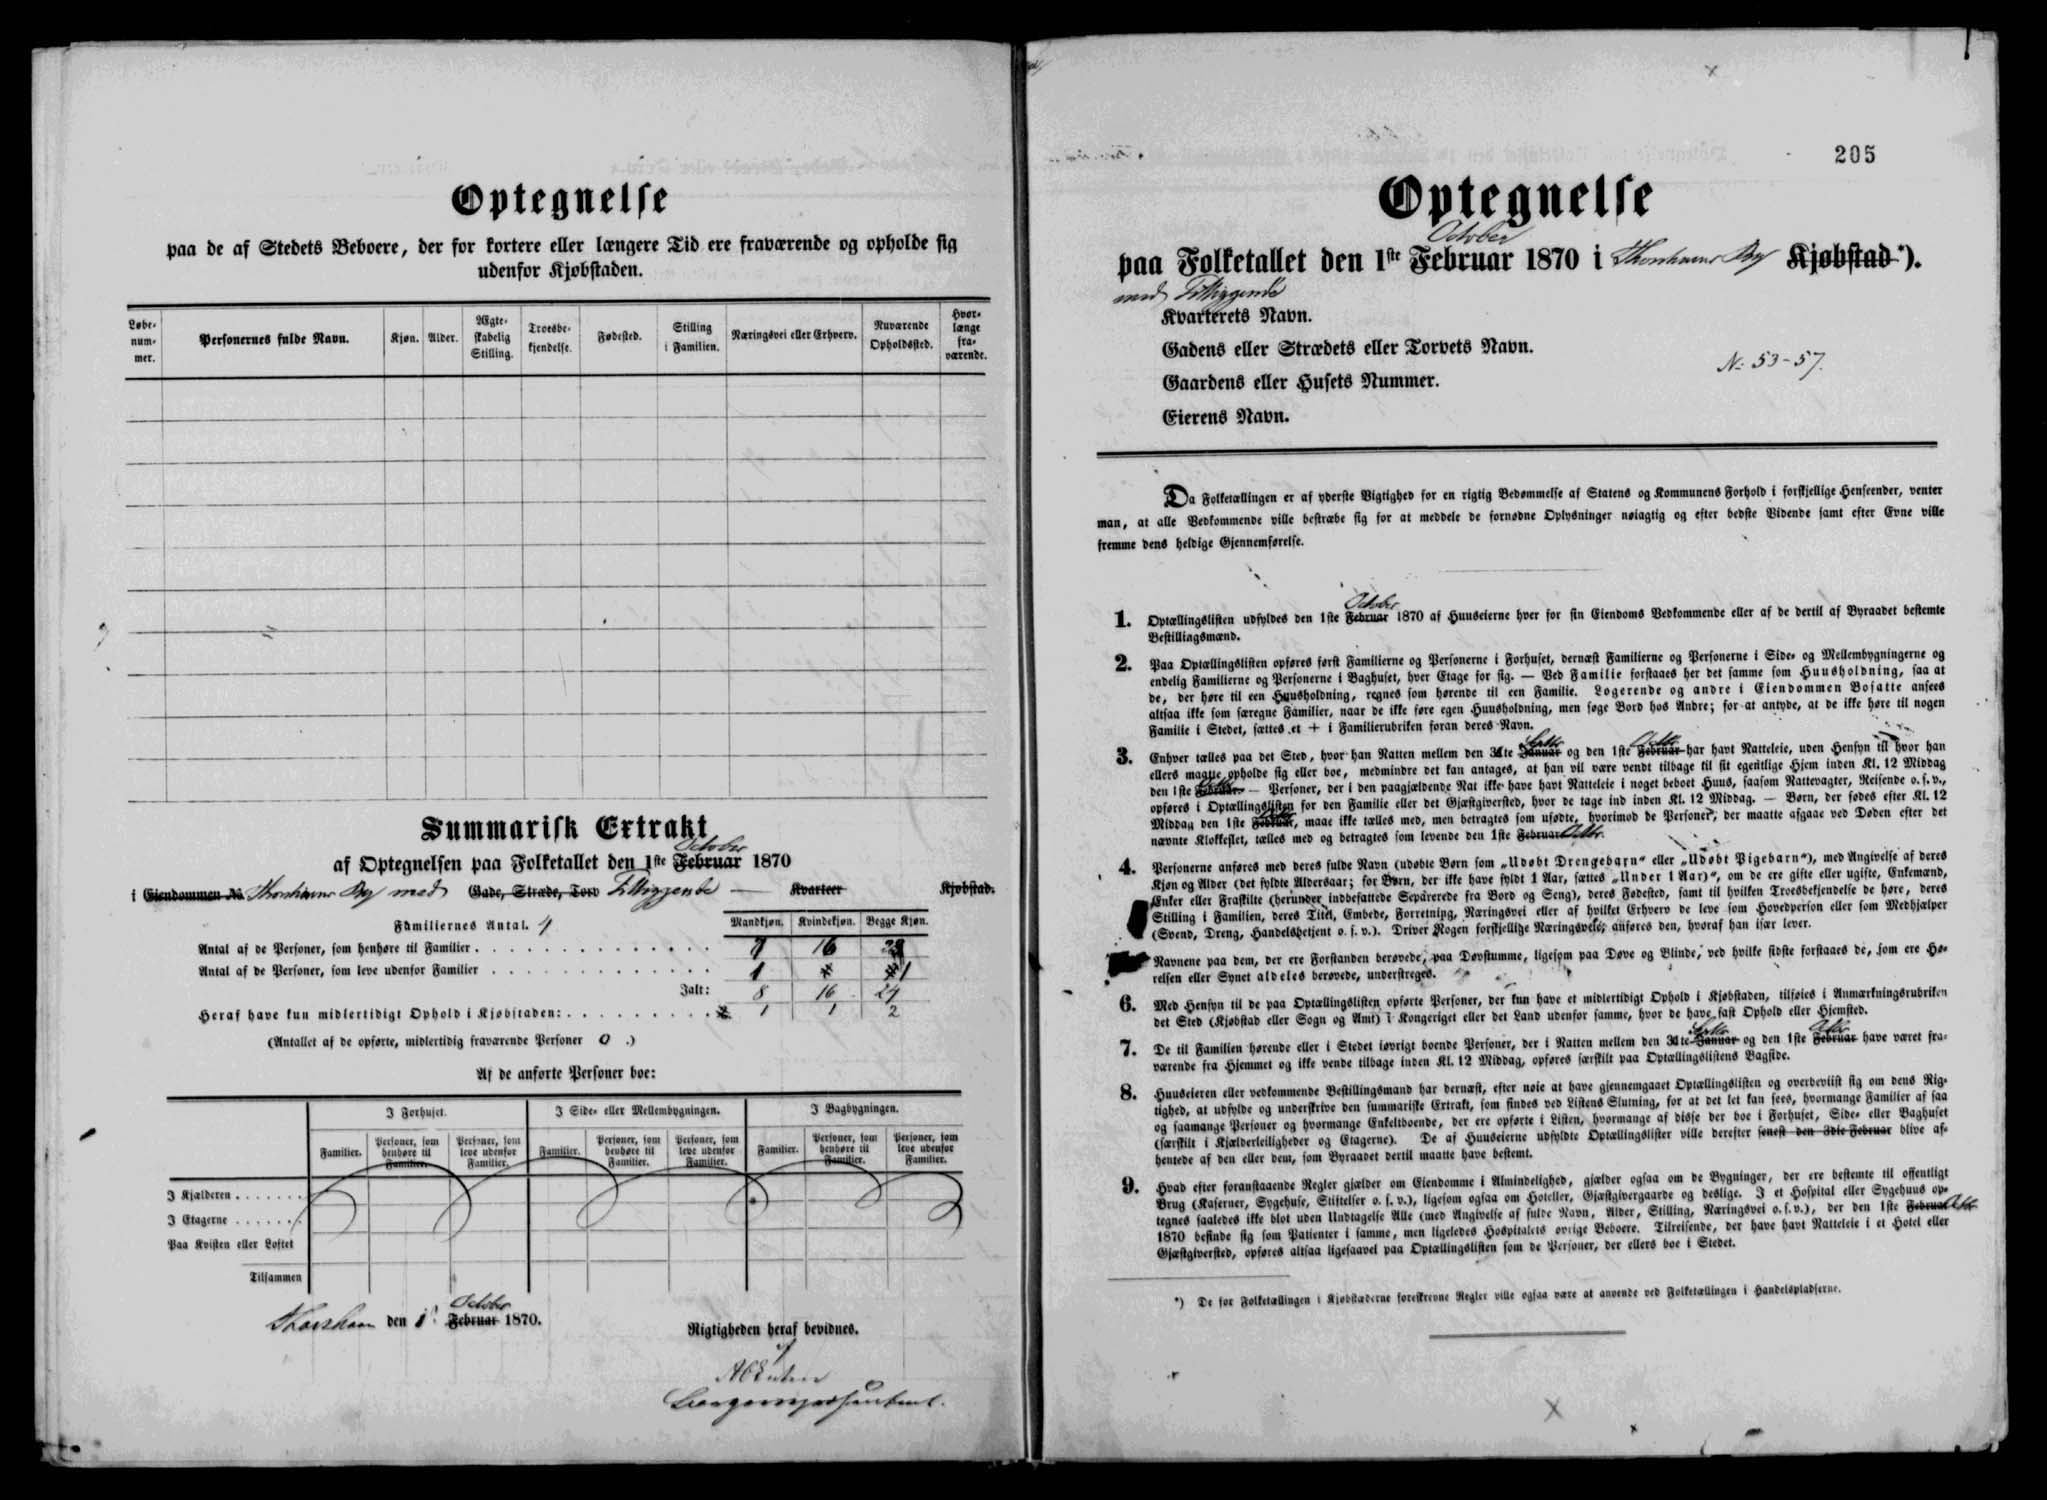 Optegnelse
paa de af Stedets Beboere, der for kortere eller længere Tid ere fraværende og opholde sig
udenfor Kjøbstaden.
Løbe-
num-
mer.
Personernes fulde Navn.
Kjøn.
Alder.
Ægte-
skabelig
Stilling.
Troesbe-
kjendelse.
Fødested.
Stilling
i Familien.
Næringsvei eller Erhverv.
Nuværende
Opholdssted.
Hvor-
længe
fra-
værende.
Summarisk Extrakt
October
af Optegnelsen paa Folketallet den 1ste Februar 1870
i Eiendommen No. Thorshavns By med Gade, Stræde, Torv Tilliggende — Kvarteer Kjøbstad.
Familiernes Antal. 4
Mandkjøn. Kvindekjøn. Begge Kjøn.
Antal af de Personer, som henhøre til Familier 7 16 23
Antal af de Personer, som leve udenfor Familier 1 1
Ialt: 8 16 24
Heraf have kun midlertidigt Ophold i Kjøbstaden: 1 1 2
(Antallet af de opførte, midlertidig fraværende Personer 0 .)
Af de anførte Personer boe:
I Forhuset. I Side- eller Mellembygningen. I Bagbygningen.
Familier. Personer, som henhøre til Familier. Personer, som leve udenfor Familier. Familier. Personer, som henhøre til Familier. Personer, som leve udenfor Familier. Familier. Personer, som henhøre til Familier. Personer, som leve udenfor Familier.
I Kjælderen
I Etagerne
Paa Kvisten eller Loftet
Tilsammen
October
Thorshavn den 1ste Februar 1870.
Rigtigheden heraf bevidnes.
205
Optegnelse
October
paa Folketallet den 1ste Februar 1870 i Thorshavns By Kjøbstad*).
med Tilliggende
Kvarterets Navn.
Gadens eller Strædets eller Torvets Navn.
N: 53-57.
Gaardens eller Husets Nummer.
Eierens Navn.
Da Folketællingen er af yderste Vigtighed for en rigtig Bedømmelse af Statens og Kommunens Forhold i forskjellige Henseender, venter
man, at alle Vedkommende ville bestræbe sig for at meddele de fornødne Oplysninger nøiagtig og efter bedste Vidende samt efter Evne ville
fremme dens heldige Gjennemførelse.
October
1. Optællingslisten udfyldes den 1ste Februar 1870 af Huuseierne hver for sin Eiendoms Vedkommende eller af de dertil af Byraadet bestemte
Bestillingsmænd.
2. Paa Optællingslisten opføres først Familierne og Personerne i Forhuset, dernæst Familierne og Personerne i Side- og Mellembygningerne og
endelig Familierne og Personerne i Baghuset, hver Etage for sig. — Ved Familie forstaaes her det samme som Huusholdning, saa at
de, der høre til een Huusholdning, regnes som hørende til een Familie. Logerende og andre i Eiendommen Bosatte ansees
altsaa ikke som særegne Familier, naar de ikke føre egen Huusholdning, men søge Bord hos Andre; for at antyde, at de ikke høre til nogen
Familie i Stedet, sættes et + i Familierubriken foran deres Navn.
Septbr. Octbr.
3. Enhver tælles paa det Sted, hvor han Natten mellem den 31te Januar og den 1ste Februar har havt Natteleie, uden Hensyn til hvor han
ellers maatte opholde sig eller boe, medmindre det kan antages, at han vil være vendt tilbage til sit egentlige Hjem inden Kl. 12 Middag
Octbr.
den 1ste Februar. — Personer, der i den paagjældende Nat ikke have havt Natteleie i noget beboet Huus, saasom Nattevagter, Reisende o. s. v.,
opføres i Optællingslisten for den Familie eller det Gjæstgiversted, hvor de tage ind inden Kl. 12 Middag. — Børn, der fødes efter Kl. 12
Octbr.
Middag den 1ste Februar, maae ikke tælles med, men betragtes som ufødte, hvorimod de Personer, der maatte afgaae ved Døden efter det
nævnte Klokkeslet, tælles med og betragtes som levende den 1ste Februar Octbr.
4. Personerne anføres med deres fulde Navn (udøbte Børn som „Udøbt Drengebarn" eller „Udøbt Pigebarn"), med Angivelse af deres
Kjøn og Alder (det fyldte Aldersaar; for Børn, der ikke have fyldt 1 Aar, sættes „Under 1 Aar)", om de ere gifte eller ugifte, Enkemænd,
Enker eller Fraskilte (herunder indbefattede Separerede fra Bord og Seng), deres Fødested, samt til hvilken Troesbekjendelse de høre, deres
Stilling i Familien, deres Titel, Embede, Forretning, Næringsvei eller af hvilket Erhverv de leve som Hovedperson eller som Medhjælper
(Svend, Dreng, Handelsbetjent o. s. v.). Driver Nogen forskjellige Næringsveie, anføres den, hvoraf han især lever.
Navnene paa dem, der ere Forstanden berøvede, paa Døvstumme, ligesom paa Døve og Blinde, ved hvilke sidste forstaaes de, som ere Hø-
relsen eller Synet aldeles berøvede, understreges.
6. Med Hensyn til de paa Optællingslisten opførte Personer, der kun have et midlertidigt Ophold i Kjøbstaden, tilføies i Anmærkningsrubriken
det Sted (Kjøbstad eller Sogn og Amt) i Kongeriget eller det Land udenfor samme, hvor de have fast Ophold eller Hjemsted.
Septbr. Octbr.
7. De til Familien hørende eller i Stedet iøvrigt boende Personer, der i Natten mellem den 31te Januar og den 1ste Februar have været fra-
værende fra Hjemmet og ikke vende tilbage inden Kl. 12 Middag, opføres særskilt paa Optællingslistens Bagside.
8. Huuseieren eller vedkommende Bestillingsmand har dernæst, efter nøie at have gjennemgaaet Optællingslisten og overbeviist sig om dens Rig-
tighed, at udfylde og underskrive den summariske Extrakt, som findes ved Listens Slutning, for at det let kan sees, hvormange Familier af saa
og saamange Personer og hvormange Enkeltboende, der ere opførte i Listen, hvormange af disse der boe i Forhuset, Side- eller Baghuset
(særskilt i Kjælderleiligheder og Etagerne). De af Huuseierne udfyldte Optællingslister ville derefter senest den 3die Februar blive af-
hentede af den eller dem, som Byraadet dertil maatte have bestemt.
9. Hvad efter foranstaaende Regler gjælder om Eiendomme i Almindelighed, gjælder ogsaa om de Bygninger, der ere bestemte til offentligt
Brug (Kaserner, Sygehuse, Stiftelser o. s. v.), ligesom ogsaa om Hoteller, Gjæstgivergaarde og deslige. I et Hospital eller Sygehuus op-
tegnes saaledes ikke blot uden Undtagelse Alle (med Angivelse af fulde Navn, Alder, Stilling, Næringsvei o. s. v.), der den 1ste Februar Octbr.
1870 befinde sig som Patienter i samme, men ligeledes Hospitalets øvrige Beboere. Tilreisende, der have havt Natteleie i et Hotel eller
Gjæstgiversted, opføres altsaa ligesaavel paa Optællingslisten som de Personer, der ellers boe i Stedet.
*) De for Folketællingen i Kjøbstæderne foreskrevne Regler ville ogsaa være at anvende ved Folketællingen i Handelspladserne.